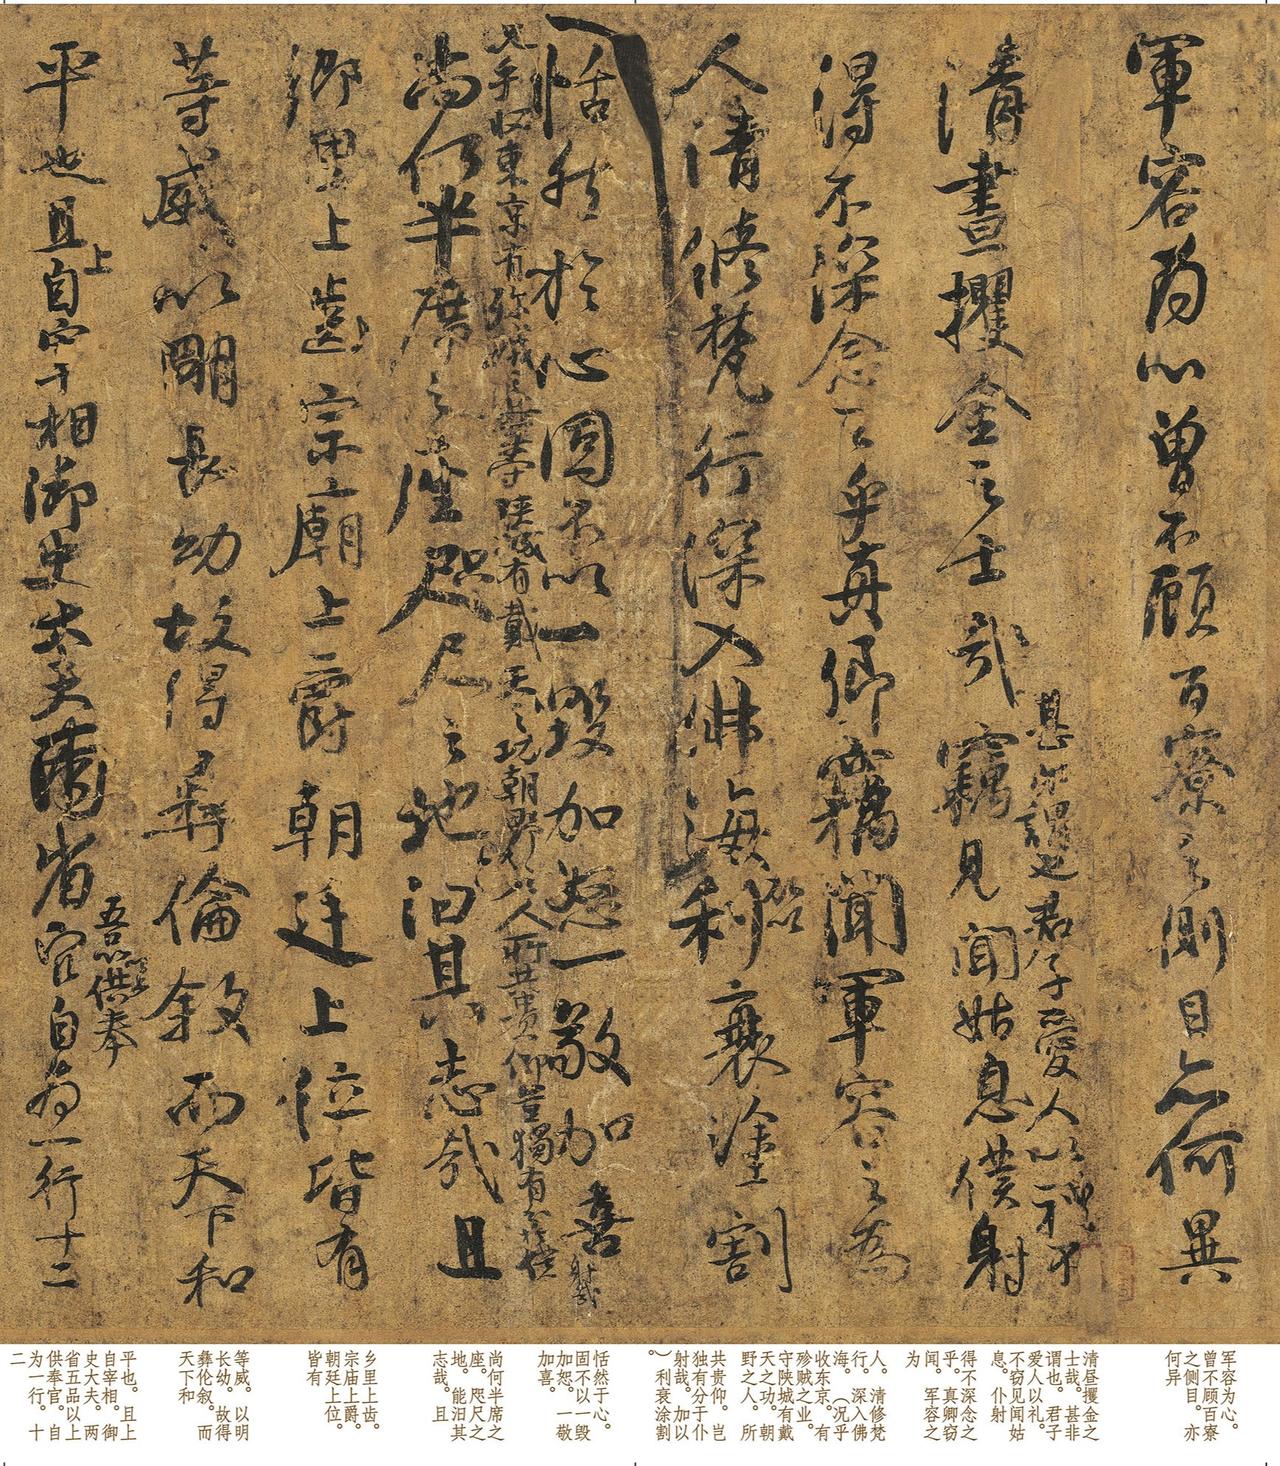 軍容爲心曾不顧百寮之側目亦何異
清晝攫金之士哉
甚非謂也君子愛人以禮不
竊見聞姑息僕射
得不深念之乎真卿竊聞軍容之爲
人清修梵行深入佛海
況
利衰塗割
加以
恬然於心固不以一毀加怒一敬加喜
收東京有殄賊之業守陝城有戴天之功朝野之人所共貴仰豈獨有分於僕
射哉
尚何半席之座咫尺之地汩其志哉且
能
鄉里上齒宗廟上爵朝廷上位皆有
等威以明長幼故得彝倫敘而天下和
平也且上自宰相御史大夫兩省
五品以上供奉
官自爲一行十二
军容为心。
曾不顾百寮
之侧目。亦
何异
清昼攫金之
士哉。甚非
谓也。君子
爱人以礼。
不窃见闻姑
息。仆射
得不深念之
乎。真卿窃
闻。军容之
为
人。清修梵
行。深入佛
海。（况乎
收东京。有
殄贼之业。
守陕城有戴
天之功。朝
野之人。所
共贵仰。岂
独有分于仆
射哉。加以
）利衰涂割
恬然于心。
固不以一毁
加怒。一敬
加喜。
尚何半席之
座。咫尺之
地。能汩其
志哉。且
乡里上齿。
宗庙上爵。
朝廷上位。
皆有
等威。以明
长幼。故得
彝伦叙。而
天下和
平也。且上
自宰相。御
史大夫。两
省五品以上
供奉官。自
为一行。十
二